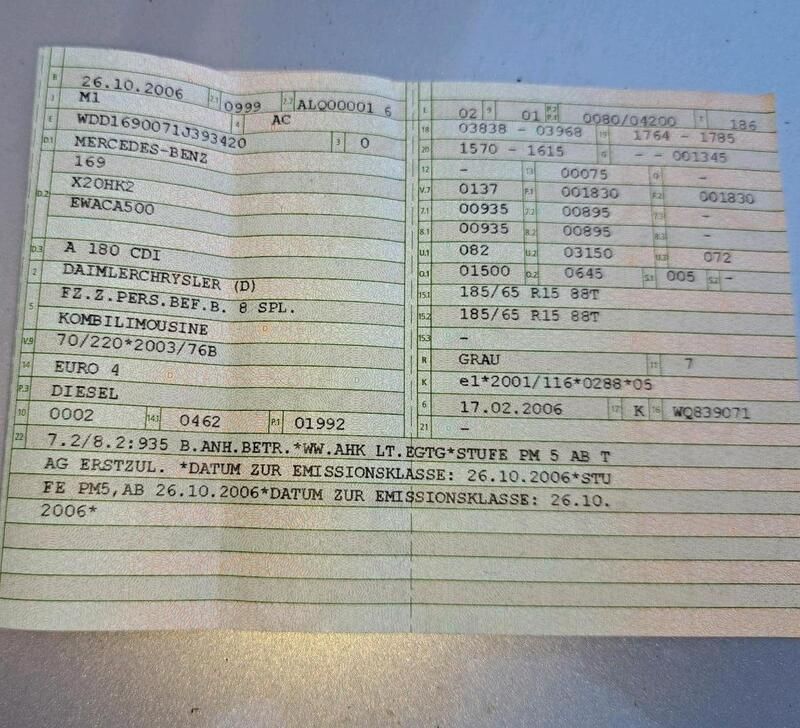 B 26.10.2006 2.1 0999 2.2 ALQ00001 6
J M1 4 AC
E WDD1690071J393420 3 0
D.1 MERCEDES-BENZ
169
D.2 X20HK2
EWACA500
D.3 A 180 CDI
2 DAIMLERCHRYSLER (D)
5 FZ.Z.PERS.BEF.B. 8 SPL.
KOMBILIMOUSINE
V.9 70/220*2003/76B
14 EURO 4
P.3 DIESEL
10 0002 14.1 0462 P.1 01992
L 02 9 01 P.2 P.4 0080/04200 T 186
18 03838 - 03968 19 1764 - 1785
20 1570 - 1615 G - - 001345
12 - 13 00075 Q -
V.7 0137 F.1 001830 F.2 001830
7.1 00935 7.2 00895 7.3 -
8.1 00935 8.2 00895 8.3 -
U.1 082 U.2 03150 U.3 072
O.1 01500 O.2 0645 S.1 005 S.2 -
15.1 185/65 R15 88T
15.2 185/65 R15 88T
15.3 -
R GRAU 11 7
K e1*2001/116*0288*05
6 17.02.2006 17 K 16 WQ839071
21 -
22 7.2/8.2:935 B.ANH.BETR.*WW.AHK LT.EGTG*STUFE PM 5 AB T
AG ERSTZUL. *DATUM ZUR EMISSIONSKLASSE: 26.10.2006*STU
FE PM5,AB 26.10.2006*DATUM ZUR EMISSIONSKLASSE: 26.10.
2006*